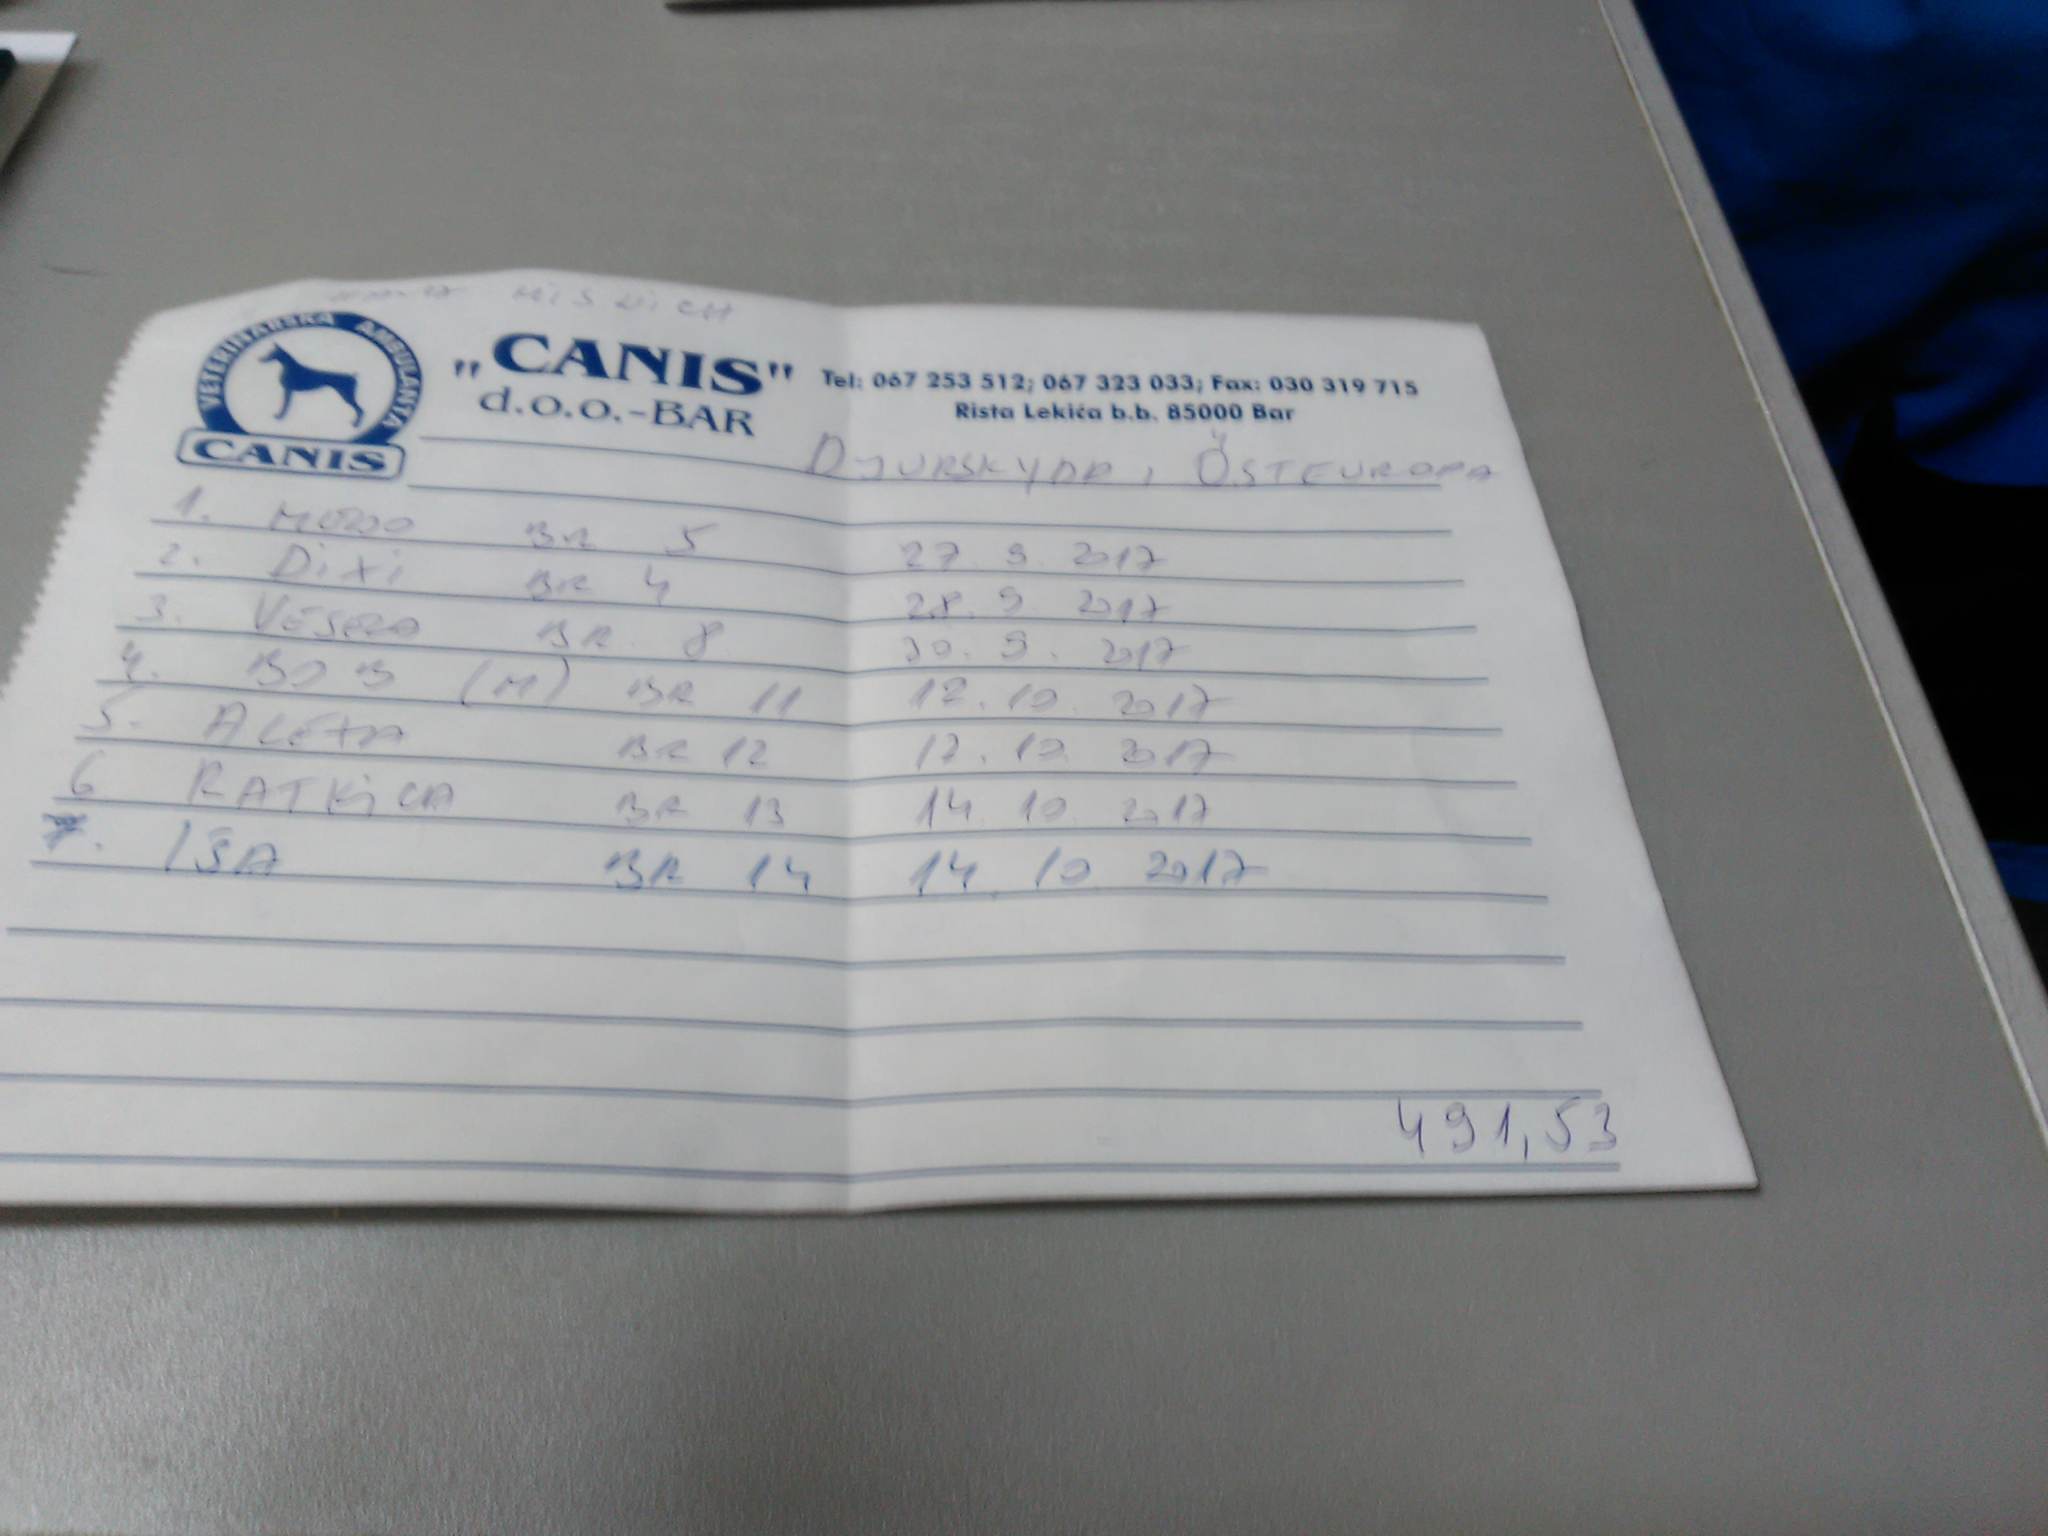 MISNICH
VETERINARSKA AMBULANTA
CANIS
"CANIS"
d.o.o.-BAR
Tel: 067 253 512; 067 323 033; Fax: 030 319 715
Rista Lekića b.b. 85000 Bar
DJURSKYDD, ÖSTEUROPA
1. BR 5 27. 9. 2017
2. DIXI BR 4 28. 9. 2017
3. VESELA BR. 8 30. 9. 2017
4. BOB (M) BR 11 12. 10. 2017
5. ALEXA BR 12 12. 10. 2017
6 RATKICA BR 13 14. 10. 2017
7. IŠA BR 14 14. 10 2017
491,53